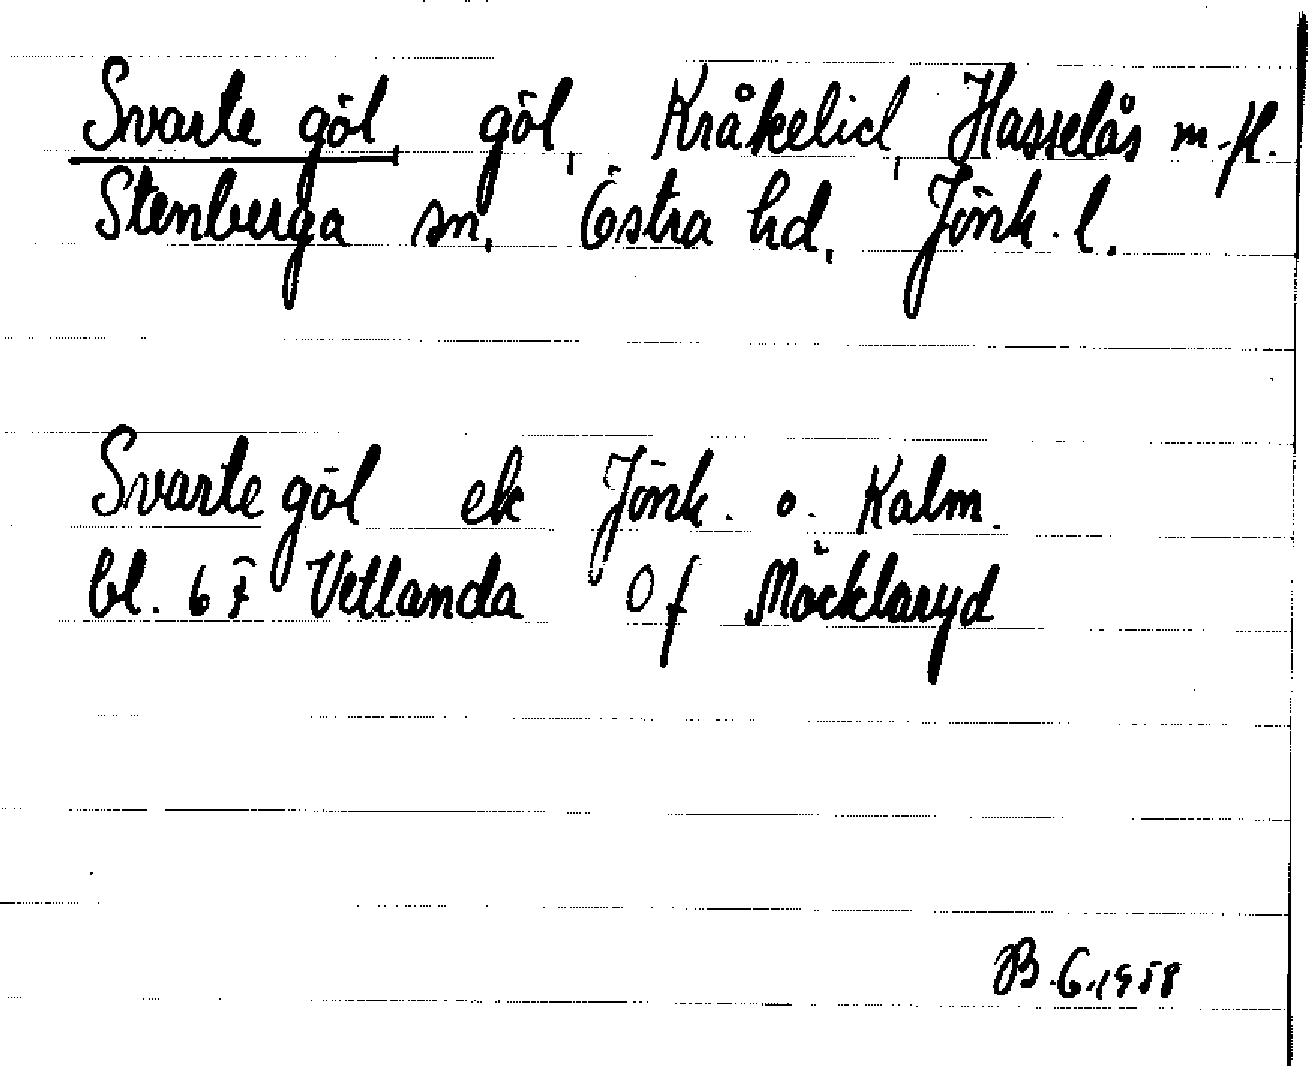 Svarte göl göl, Kråkelid, Hasselås m.fl.
Stenberga sn, Östra hd, Jönk. l.
Svarte göl ek Jönk. o. Kalm.
bl. 6 F Vetlanda 0 f Möcklaryd
B.G. 1958